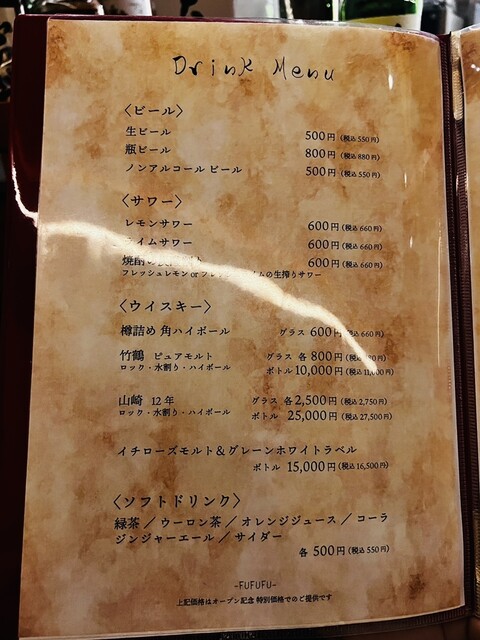 Drink Menu
〈ビール〉
生ビール 500円（税込550円）
瓶ビール 800円（税込880円）
ノンアルコール ビール 500円（税込550円）
〈サワー〉
レモンサワー 600円（税込660円）
イムサワー 600円（税込660円）
焼酎 600円（税込660円）
フレッシュレモン or フレ イムの生搾りサワー
〈ウイスキー〉
樽詰め 角ハイボール グラス 600円 税込660円）
竹鶴 ピュアモルト グラス 各 800円
ロック・水割り・ハイボール ボトル 10,000円（税込11,000円）
山崎 12年 グラス 各2,500円（税込2,750円）
ロック・水割り・ハイボール ボトル 25,000円（税込27,500円）
イチローズモルト＆グレーンホワイトラベル
ボトル 15,000円（税込16,500円）
〈ソフトドリンク〉
緑茶 ／ ウーロン茶 ／ オレンジジュース ／ コーラ
ジンジャーエール ／ サイダー
各 500円（税込550円）
-FUFUFU-
上記価格はオープン記念 特別価格でのご提供です